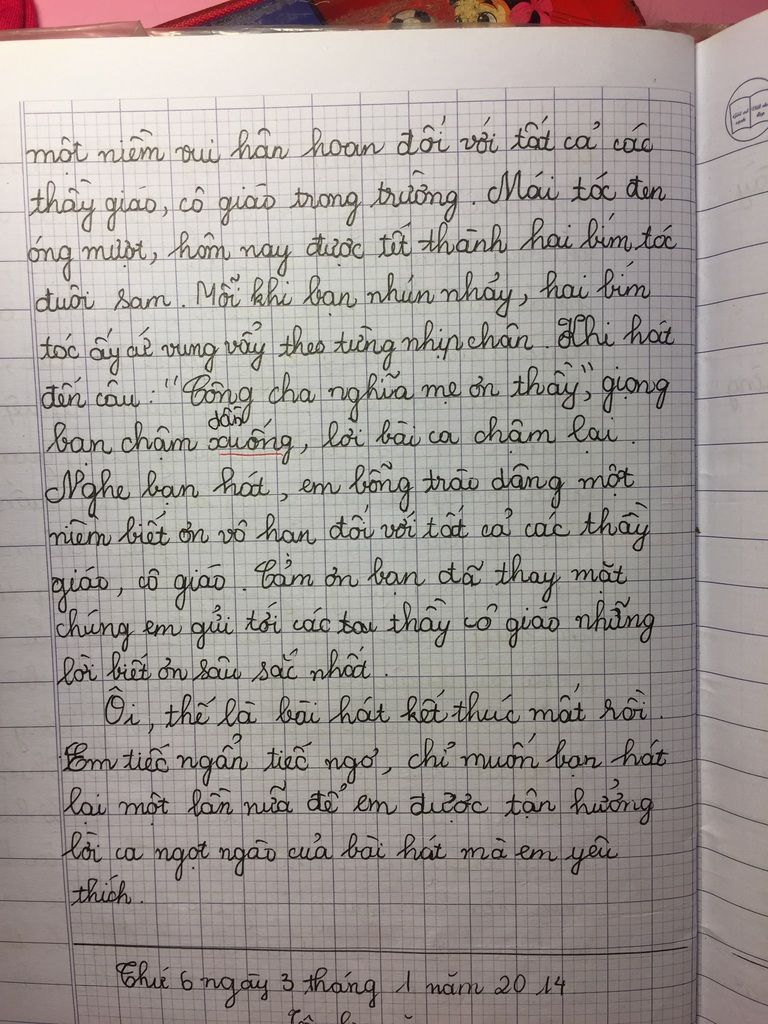 một niềm vui hân hoan đối với tất cả các
thầy giáo, cô giáo trong trường. Mái tóc đen
óng mượt, hôm nay được tết thành hai bím tóc
đuôi sam. Mỗi khi bạn nhún nhảy, hai bím
tóc ấy cứ vung vẩy theo từng nhịp chân. Khi hát
đến câu: "Công cha nghĩa mẹ ơn thầy", giọng
dần
bạn chậm xuống, lời bài ca chậm lại.
Nghe bạn hát, em bỗng trào dâng một
niềm biết ơn vô hạn đối với tất cả các thầy
giáo, cô giáo. Cảm ơn bạn đã thay mặt
chúng em gửi tới các thầy cô giáo những
lời biết ơn sâu sắc nhất.
Ôi, thế là bài hát kết thúc mất rồi.
Em tiếc ngẩn tiếc ngơ, chỉ muốn bạn hát
lại một lần nữa để em được tận hưởng
lời ca ngọt ngào của bài hát mà em yêu
thích.
Thứ 6 ngày 3 tháng 1 năm 2014